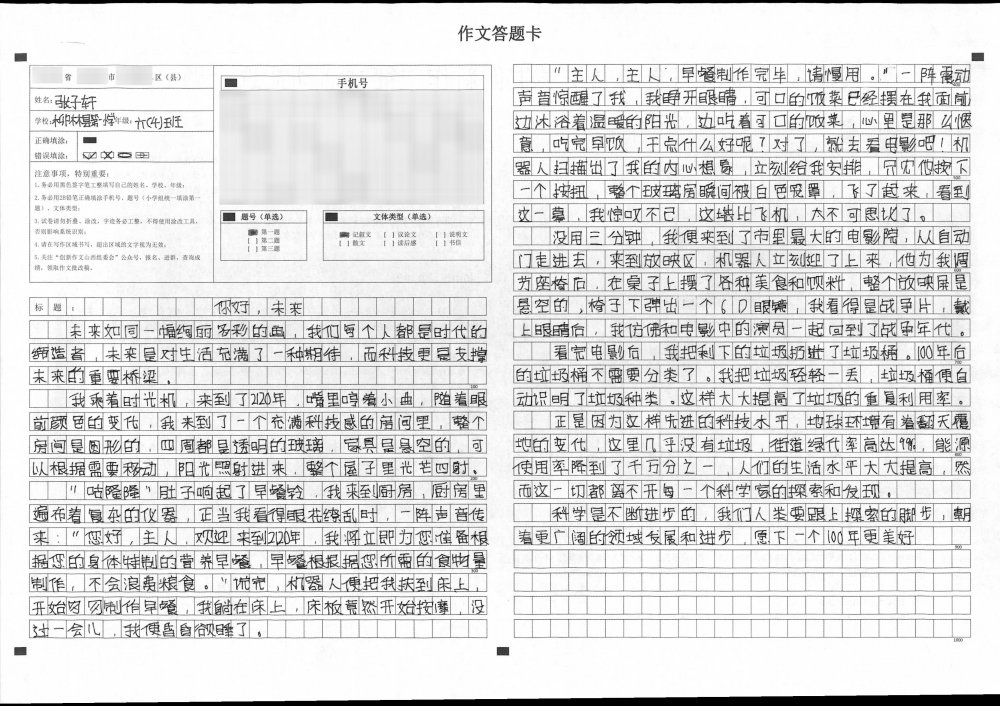 作文答题卡
省 市 区（县）
姓名：张子轩
学校： 年级：六(4)班
正确填涂：
错误填涂：
注意事项，特别重要：
1.务必用黑色签字笔工整填写自己的姓名、学校、年级；
2.务必用2B铅笔正确填涂手机号、题号（小学组统一填涂第一
题）、文体类型；
3.试卷请勿折叠、涂改，字迹务必工整，不得使用涂改工具，
否则影响系统识别；
4.请在写作区域书写，超出区域的文字视为无效；
5.关注“创新作文山西组委会”公众号，报名、进群、查询成
绩、领取作文批改稿。
手机号
题号（单选）
第一题
[ ] 第二题
[ ] 第三题
文体类型（单选）
记叙文 [ ] 议论文 [ ] 说明文
[ ] 散文 [ ] 读后感 [ ] 书信
标 题： 你好，未来
未来如同一幅绚丽多彩的画，我们每个人都是时代的
缔造者，未来是对生活充满了一种期待，而科技更是支撑
未来的重要桥梁。
100
我乘着时光机，来到了2120年，嘴里哼着小曲，随着眼
前颜色的变化，我来到了一个充满科技感的房间里，整个
房间是圆形的，四周都是透明的玻璃，家具是悬空的，可
以根据需要移动，阳光照射进来，整个屋子里光芒四射。
200
“咕隆隆”肚子响起了早餐铃，我来到厨房，厨房里
遍布着复杂的仪器，正当我看得眼花缭乱时，一阵声音传
来：“您好，主人，欢迎来到2120年，我将立即为您准备根
据您的身体特制的营养早餐，早餐根据您所需的食物量
300
制作，不会浪费粮食。”说完，机器人便把我扶到床上，
开始匆匆制作早餐，我躺在床上，床板竟然开始按摩，没
过一会儿，我便昏昏欲睡了。
“主人，主人，早餐制作完毕，请慢用。”一阵震动
400
声音惊醒了我，我睁开眼睛，可口的饭菜已经摆在我面前
边沐浴着温暖的阳光，边吃着可口的饭菜，心里是那么惬
意，吃完早饭，干点什么好呢？对了，就去看电影吧！机
器人扫描出了我的内心想象，立刻给我安排，只见他按下
500
一个按钮，整个玻璃房瞬间被白色笼罩，飞了起来，看到
这一幕，我惊叹不已，这堪比飞机，太不可思议了。
没用三分钟，我便来到了市里最大的电影院，从自动
门走进去，来到放映区，机器人立刻迎了上来，他为我调
600
为座椅后，在桌子上摆了各种美食和饮料，整个放映屏是
悬空的，椅子下弹出一个6D眼镜，我看得是战争片，戴
上眼睛后，我仿佛和电影中的演员一起回到了战争年代。
看完电影后，我把剩下的垃圾扔进了垃圾桶。100年后
700
的垃圾桶不需要分类了。我把垃圾轻轻一丢，垃圾桶便自
动识明了垃圾种类。这样大大提高了垃圾的重复利用率。
正是因为这样先进的科技水平，地球环境有着翻天覆
地的变化，这里几乎没有垃圾，街道绿化率高达99%，能源
800
使用率降到了千万分之一，人们的生活水平大大提高，然
而这一切都离不开每一个科学家的探索和发现。
科学是不断进步的，我们人类要跟上探索的脚步，朝
着更广阔的领域发展和进步，愿下一个100年更美好
900
1000